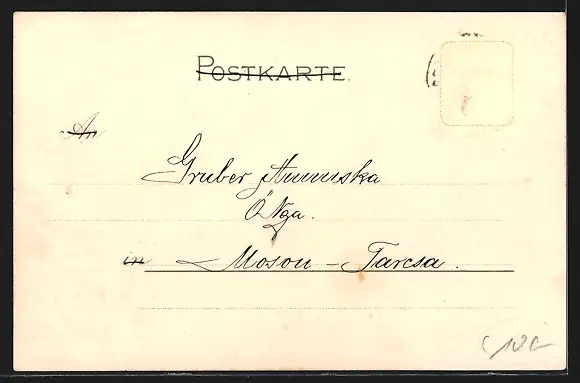 POSTKARTE.
An
Gruber Annuska
Ő Nga.
in Moson - Tarcsa.